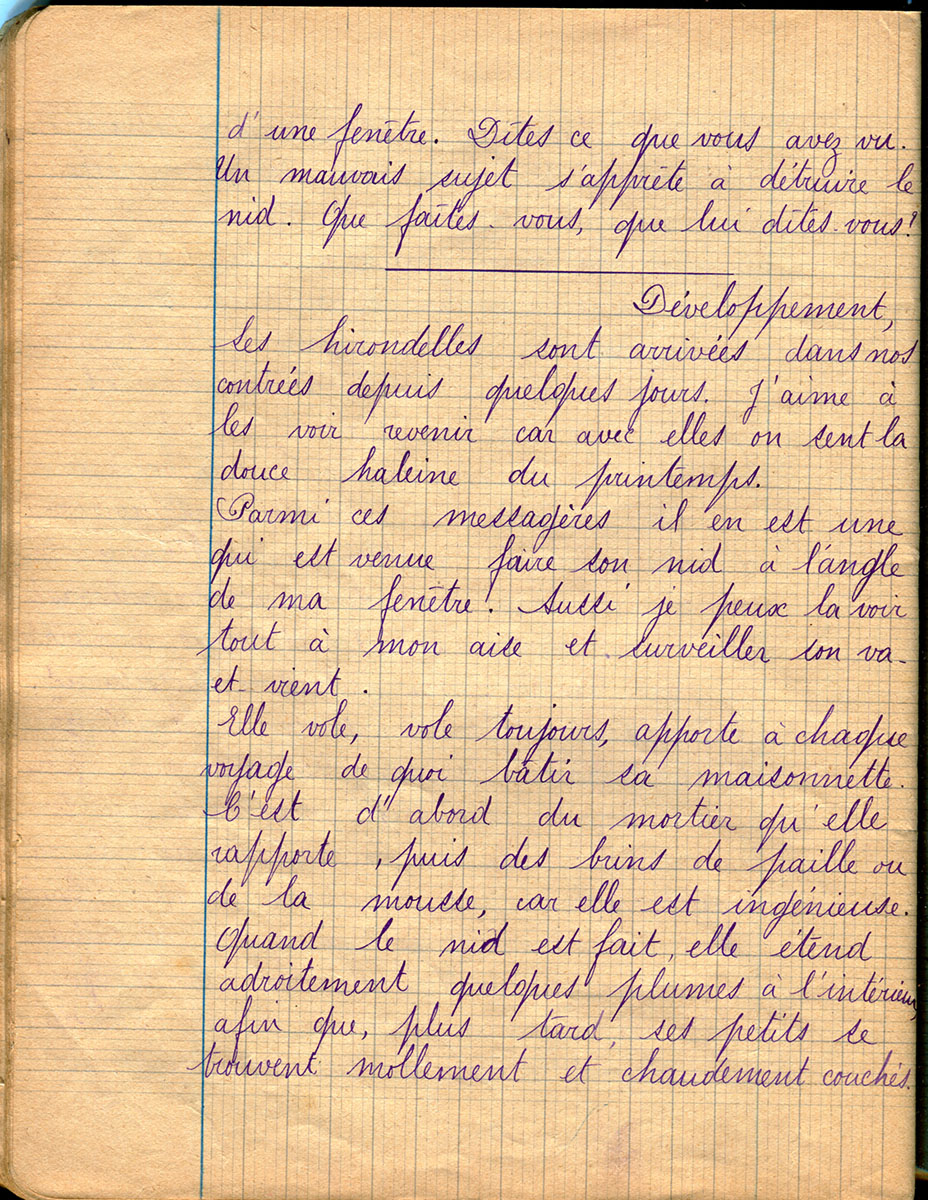 d'une fenêtre. Dîtes ce que vous avez vu.
Un mauvais sujet s'apprête à détruire le
nid. Que faîtes-vous, que lui dîtes-vous?
Développement,
Les hirondelles sont arrivées dans nos
contrées depuis quelques jours. J'aime à
les voir revenir car avec elles on sent la
douce haleine du printemps.
Parmi ces messagères il en est une
qui est venue faire son nid à l'angle
de ma fenêtre. Aussi je peux la voir
tout à mon aise et surveiller son va-
et-vient.
Elle vole, vole toujours, apporte à chaque
voyage de quoi bâtir sa maisonnette.
C'est d'abord du mortier qu'elle
rapporte, puis des brins de paille ou
de la mousse, car elle est ingénieuse.
Quand le nid est fait, elle étend
adroitement quelques plumes à l'intérieur,
afin que, plus tard, ses petits se
trouvent mollement et chaudement couchés.